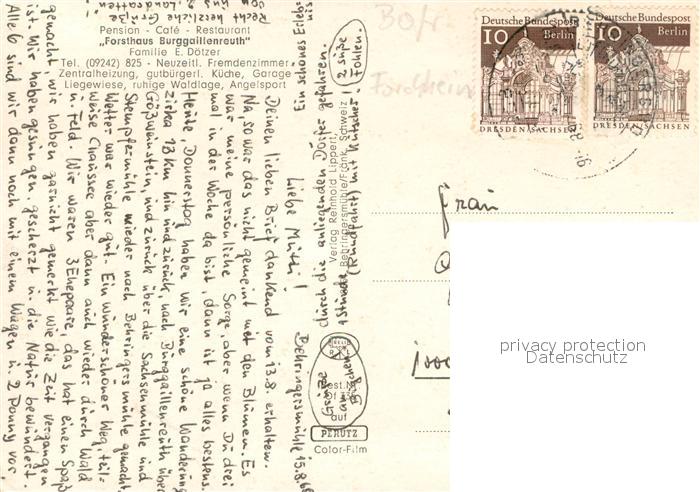 Pension - Café - Restaurant
„Forsthaus Burggaillenreuth"
Familie E. Dötzer
Tel. (09242) 825 - Neuzeitl. Fremdenzimmer
Zentralheizung, gutbürgerl. Küche, Garage
Liegewiese, ruhige Waldlage, Angelsport
Behringersmühle 15.8.68
Liebe Mutti!
Deinen lieben Brief dankend vom 13.8. erhalten.
Na, so war das nicht gemeint mit den Blumen. Es
war meine persönliche Sorge, aber wenn Du drei
mal in der Woche da bist, dann ist ja alles bestens.
Heute, Donnerstag haben wir eine schöne Wanderung
zirka 13 Km hin und zurück, nach Burggaillenreuth über
Gößwanstein, und zurück über die Sachsenmühle und
Stempfermühle wieder nach Behringersmühle gemacht.
Wetter war wieder gut. Ein wunderschöner Weg, teil-
weise Chaussee aber dann auch wieder durch Wald
u. Feld. Wir waren 3 Ehepaare, das hat einen Spaß
gemacht, wir haben garnicht gemerkt wie die Zeit vergangen
ist. Wir haben gesungen, gescherzt u. die Natur bewundert.
Alle 6 sind wir dann noch mit einem Wagen u. 2 Ponny vor
1 Stunde (Rundfahrt) mit Kutscher (2 süße Fohlen)
durch die anliegenden Dörfer gefahren.
Ein schönes Erlebnis
Recht herzliche Grüße
Verlag Reinhold Lippert,
Behringersmühle/Fränk. Schweiz
auf
PERUTZ
Color-Film
Deutsche Bundespost
10 Berlin
DRESDEN/SACHSEN
Deutsche Bundespost
10 Berlin
DRESDEN/SACHSEN
Forchheim
Frau
privacy protection
Datenschutz